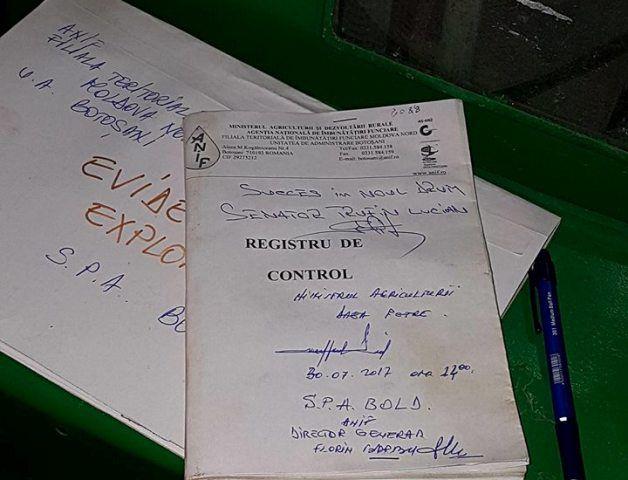 ANIF
FILIALA TERITORIAL
MOLDOVA NO
U.A. BOTOȘANI
EVIDE
EXPLO
S.P.A.
BO
2088
MINISTERUL AGRICULTURII ȘI DEZVOLTĂRII RURALE
AGENȚIA NAȚIONALĂ DE ÎMBUNĂTĂȚIRI FUNCIARE
FILIALA TERITORIALĂ DE ÎMBUNĂTĂȚIRI FUNCIARE MOLDOVA NORD
UNITATEA DE ADMINISTRARE BOTOȘANI
ANIF
Aleea M.Kogălniceanu Nr.4
Botosani 710183 ROMANIA
CIF 29275212
Tel/Fax 0231.584.158
Fax 0231.584.159
E-mail: botosani@anif.ro
www.anif.ro
SUCCES în NOUL DRUM
SENATOR TRUFIN LUCIAN
REGISTRU DE
CONTROL
MINISTRUL AGRICULTURII
DAEA PETRE.
30.07.2017 ora 17,00.
S.P.A. BOLD.
ANIF
DIRECTOR GENERAL
FLORIN